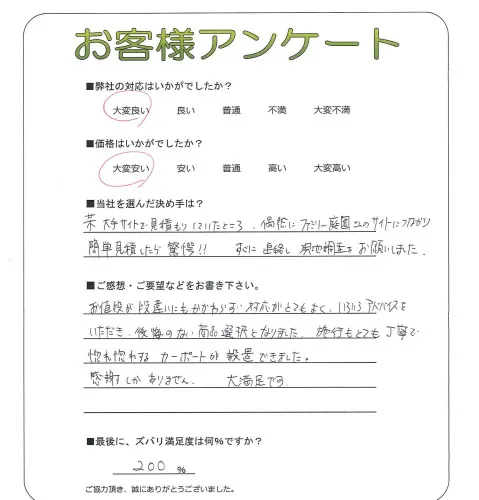 お客様アンケート
■弊社の対応はいかがでしたか？
大変良い 良い 普通 不満 大変不満
■価格はいかがでしたか？
大変安い 安い 普通 高い 大変高い
■当社を選んだ決め手は？
某 大手サイトで見積もりしていたところ、偶然にファミリー庭園さんのサイトにつながり
簡単見積したら驚愕!! すぐに連絡し現地調査をお願いしました。
■ご感想・ご要望などをお書き下さい。
お値段が段違いにもかかわらず対応がとてもよく、いろいろアドバイスを
いただき、後悔のない商品選択となりました。施行もとても丁寧で
惚れ惚れするカーポートが設置できました。
感謝しかありません。 大満足です。
■最後に、ズバリ満足度は何%ですか？
200 %
ご協力頂き、誠にありがとうございました。